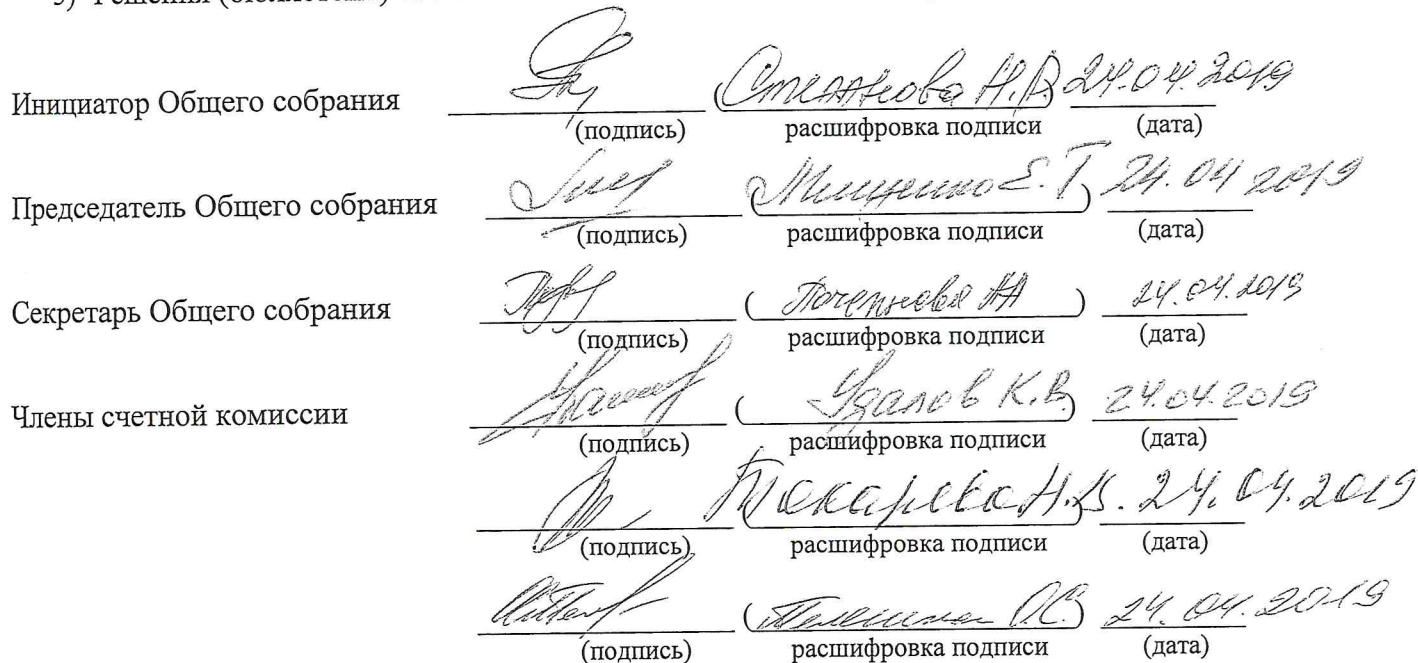 Инициатор Общего собрания ( Н.В. ) 24.04.2019
(подпись) расшифровка подписи (дата)
Председатель Общего собрания ( Мищенко Е.Т. ) 24.04 2019
(подпись) расшифровка подписи (дата)
Секретарь Общего собрания ( ) 24.04.2019
(подпись) расшифровка подписи (дата)
Члены счетной комиссии ( Удалов К.В. ) 24.04.2019
(подпись) расшифровка подписи (дата)
( Токарева Н.В. ) 24.04.2019
(подпись) расшифровка подписи (дата)
( О.С. ) 24.04.2019
(подпись) расшифровка подписи (дата)